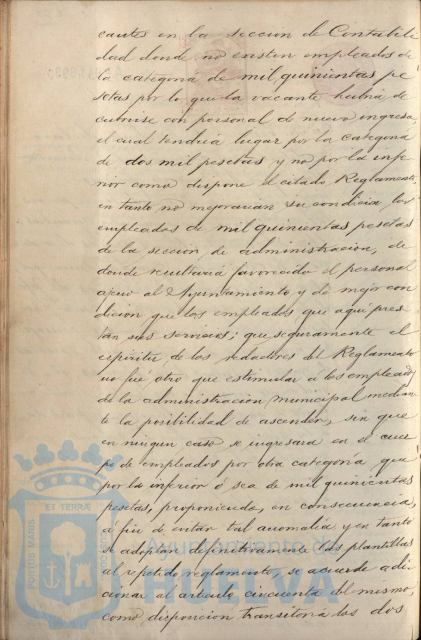 cantes en la seccion de Contabili
dad donde no existen empleados de
la categoria de mil quinientas pe
setas por lo que la vacante habria de
cubrirse con personal de nuevo ingreso,
el cual tendria lugar por la categoria
de dos mil pesetas y no por la infe
rior como dispone el citado Reglamento,
en tanto no mejorarian su condicion los
empleados de mil quinientas pesetas
de la seccion de administracion, de
donde resultaria favorecido el personal
ageno al Ayuntamiento y de mejor con
dicion que los empleados que aqui pres
tan sus servicios; que seguramente el
espiritu de los redactores del Reglamento
no fué otro que estimular á los empleados
de la administración municipal median
te la posibilidad de ascender, sin que
en ningun caso se ingresara en el cuer
po de empleados por otra categoría que
por la inferior ó sea de mil quinientas
pesetas, proponiendo, en consecuencia,
á fin de evitar tal anomalia y en tanto
se adoptan definitivamente las plantillas
al repetido reglamento, se acuerde adi
cionar al artículo cincuenta del mismo,
como disposicion transitoria los dos
PORTUS MARIS
ET TERRÆ
Ayuntamiento de
HUELVA